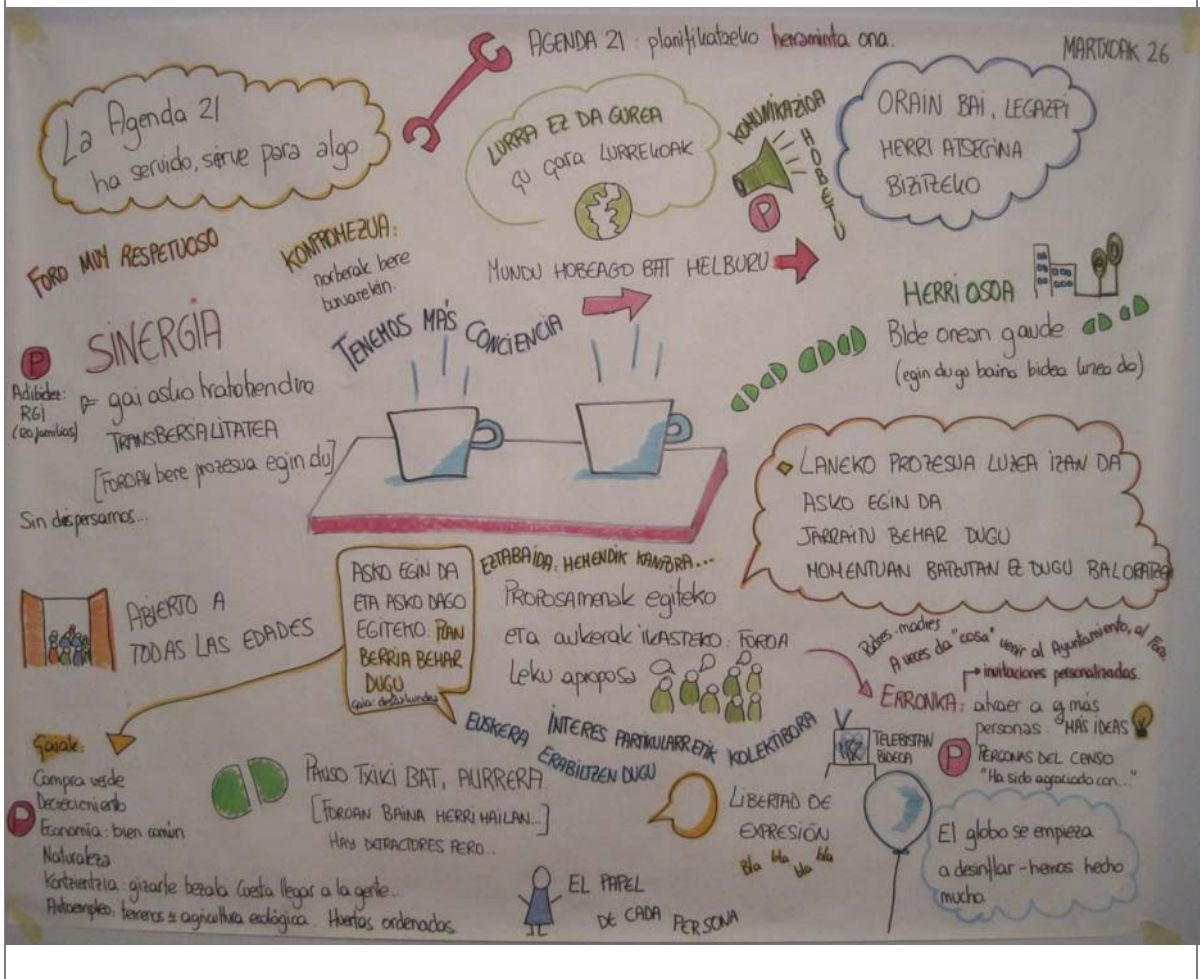 AGENDA 21: planifikatzeko herraminta ona.
MARTXOAK 26
La Agenda 21
ha servido, sirve para algo
LURRA EZ DA GUREA
gu gara LURREKOAK
KOMUNIKAZIOA
HOBETU
P
ORAIN BAI, LEGAZPI
HERRI ATSEGINA
BIZITZEKO
FORO MUY RESPETUOSO
KONPROMEZUA:
norberak bere
buruarekin.
MUNDU HOBEAGO BAT HELBURU
HERRI OSOA
Bide onean gaude
(egin dugu baina bidea luzea da)
TENEMOS MÁS CONCIENCIA
SINERGIA
P
Adibidez:
RGI
(20 familias)
gai asko
TRANSBERSALITATEA
[FOROAK bere prozesua egin du]
Sin dispersarnos...
LANEKO PROZESUA LUZEA IZAN DA
ASKO EGIN DA
JARRAITU BEHAR DUGU
MOMENTUAN BATZUTAN EZ DUGU BALORATZEN
ABIERTO A
TODAS LAS EDADES
ASKO EGIN DA
ETA ASKO DAGO
EGITEKO: PLAN
BERRIA BEHAR
DUGU
Gaia:
EZTABAIDA, HEMENDIK KANPORA...
Proposamenak egiteko
eta aukerak ikasteko: FOROA
Leku aproposa
Padres-madres
A veces da "cosa" venir al Ayuntamiento, al Foro.
invitaciones personalizadas.
ERRONKA: atraer a + más
personas. "MÁS IDEAS
P PERSONAS DEL CENSO
"Ha sido agraciado con..."
TELEBISTAN
BIDEOA
INTERES PARTIKULARRETIK KOLEKTIBORA
EUSKERA ERABILTZEN DUGU
Gaiak:
Compra verde
Decrecimiento
P Economía: bien común
Naturaleza
Kontzientzia: gizarte bezala Cuesta llegar a la gente...
Autoempleo: terrenos agricultura ecológica. Huertas ordenadas.
PAUSO TXIKI BAT, AURRERA.
[FOROAN BAINA HERRI MAILAN...]
HAY DETRACTORES PERO...
LIBERTAD DE
EXPRESIÓN
Bla bla bla bla
EL PAPEL
DE CADA PERSONA
El globo se empieza
a desinflar - hemos hecho
mucho.